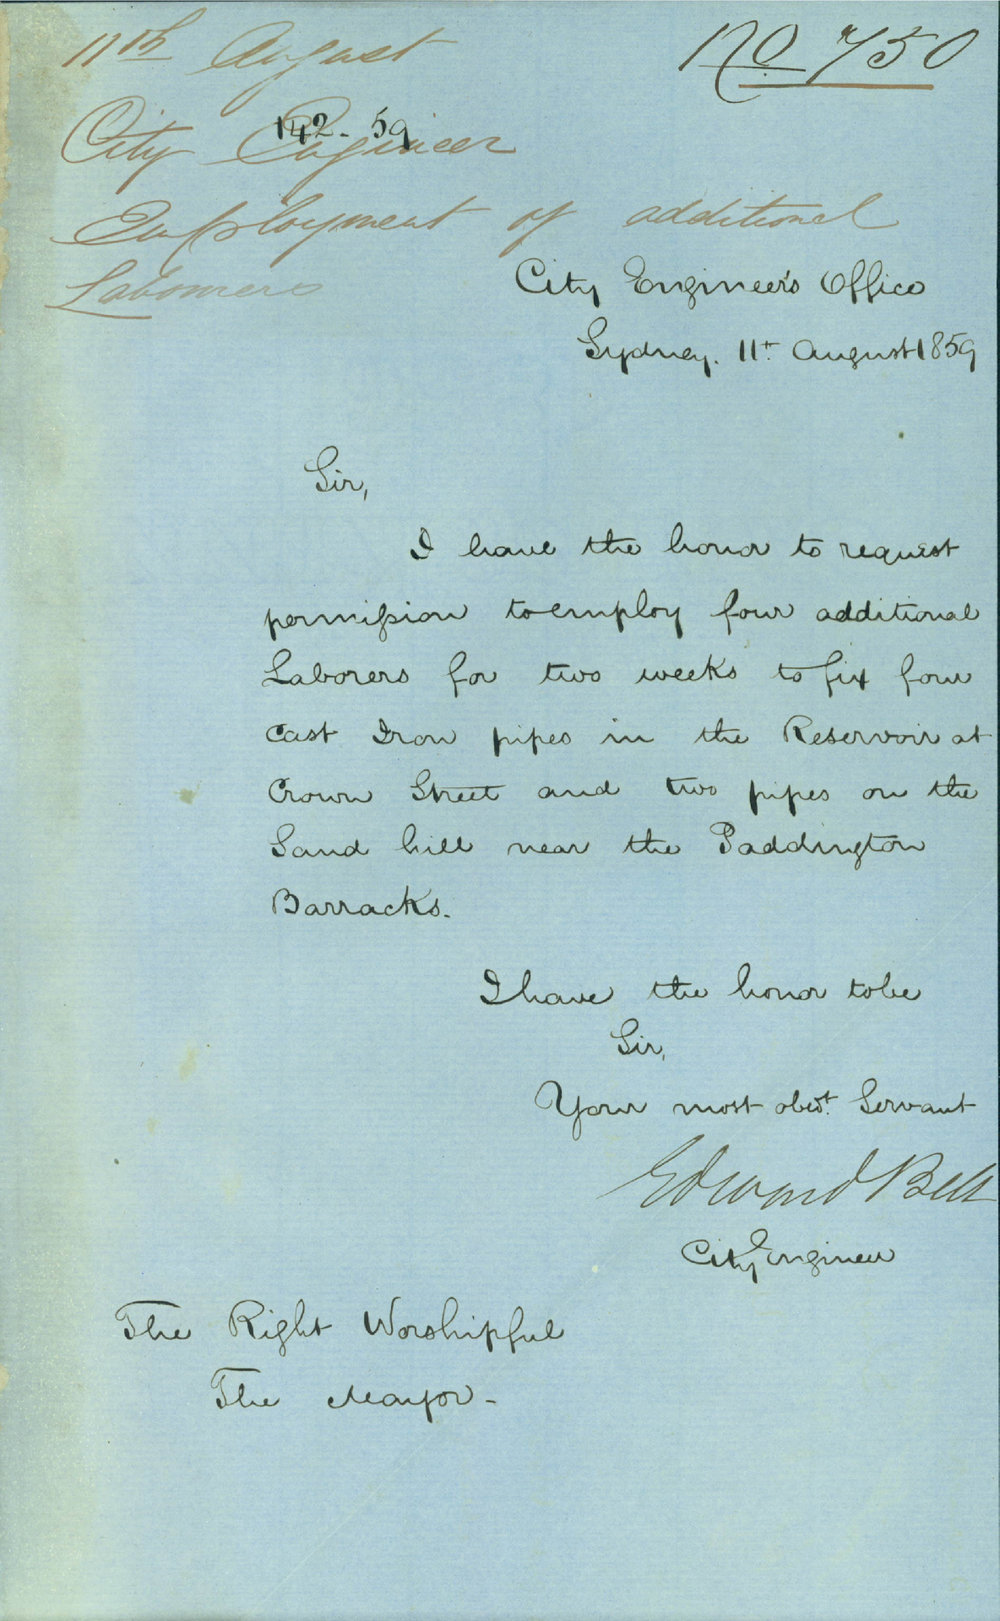 11th August
No 750
City Engineer
142-59
Employment of additional
Labourers
City Engineer's Office
Sydney. 11th August 1859
Sir,
I have the honor to request
permission to employ four additional
Laborers for two weeks to fix four
Cast Iron pipes in the Reservoir at
Crown Street and two pipes on the
Sand hill near the Paddington
Barracks.
I have the honor to be
Sir,
Your most obedt. Servant
Edward Bell
City Engineer
The Right Worshipful
The Mayor -